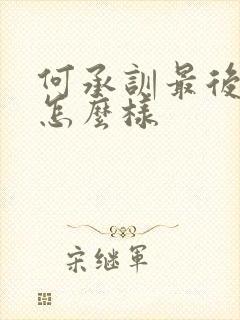 何承訓最後
怎麼樣
宋继軍